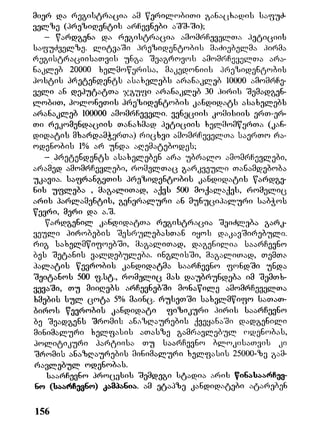 მიერ და რეგისტრაცია ამ წერილობითი განაცხადის საფუძ-
ველზე (პრეზიდენტის არჩევნები აშშ-ში);
– წარდგენა და რეგისტრაცია ამომრჩეველთა პეტიციის
საფუძველზე. ლიტვაში პრეზიდენტობის მაძიებელმა პირმა
რეგისტრაციისათვის უნდა შეაგროვოს ამომრჩეველთა არა-
ნაკლებ 20000 ხელმოწერისა, მაკედონიის პრეზიდენტობის
პოსტის პრეტენდენტს ასახელებს არანაკლებ 10000 ამომრჩე-
ველი ან დეპუტატთა ჯგუფი არანაკლებ 30 პირის შემადგენ-
ლობით, პოლონეთის პრეზიდენტობის კანდიდატს ასახელებს
არანაკლებ 100000 ამომრჩეველი. ვენეციის კომისიის ერთ-ერ-
თი რეკომენდაციის თანახმად პეტიციის ხელმომწერთა (კან-
დიდატის მხარდამჭერთა) რიცხვი ამომრჩეველთა საერთო რა-
ოდენობის 1% არ უნდა აღემატებოდეს;
– პრეტენდენტს ასახელებენ არა უბრალო ამომრჩევლები,
არამედ ამომრჩევლები, რომელთაც გარკვეული თანამდებობა
უკავია. საფრანგეთის პრეზიდენტობის კანდიდატის წარდგე-
ნის უფლება , მაგალითად, აქვს 500 მოქალაქეს, რომელიც
არის პარლამენტის, გენერალური ან მუნუციპალური საბჭოს
წევრი, მერი და ა.შ.
წარდგენილ კანდიდატთა რეგისტრაცია შეიძლება გარკ-
ვეული პირობების შესრულებასთან იყოს დაკავშირებული.
რიგ სახელმწიფოებში, მაგალითად, დაგენილია საარჩევნო
ბეს შეტანის ვალდებულება. ინგლისში, მაგალითად, თემთა
პალატის წევრობის კანდიდატმა საარჩევნო ფონდში უნდა
შეიტანოს 500 ფ.სტ., რომელიც მას დაუბრუნდება იმ შემთხ-
ვევაში, თუ მიიღებს არჩევნებში მონაწილე ამომრჩეველთა
ხმების სულ ცოტა 5% მაინც. რუსეთში სახელმწიფო სათათ-
ბიროს წევრობის კანდიდატი ფიზიკური პირის საარჩევნო
ბე შეადგენს შრომის ანაზღაურების ქვეყანაში დადგენილი
მინიმალური ხელფასის ათასზე გამრავლებულ ოდენობას,
პოლიტიკური პარტიისა თუ საარჩევნო ბლოკისათვის კი
შრომის ანაზღაურების მინიმალური ხელფასის 25000-ზე გამ-
რავლებულ ოდენობას.
საარჩევნო პროცესის შემდეგი სტადია არის წინასაარჩევ-
ნო (საარჩევნო) კამპანია. ამ ეტაპზე კანდიდატები ატარებენ
156